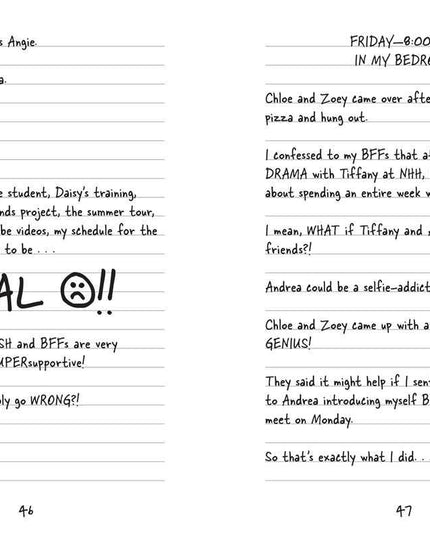 s Angie.
a.
e student, Daisy's training,
nds project, the summer tour,
be videos, my schedule for the
to be . . .
AL ☹!!
SH and BFFs are very
UPERsupportive!
ly go WRONG?!
46
FRIDAY—8:00
IN MY BEDR
Chloe and Zoey came over afte
pizza and hung out.
I confessed to my BFFs that a
DRAMA with Tiffany at NHH,
about spending an entire week w
I mean, WHAT if Tiffany and
friends?!
Andrea could be a selfie-addict
Chloe and Zoey came up with a
GENIUS!
They said it might help if I sen
to Andrea introducing myself B
meet on Monday.
So that's exactly what I did. .
47